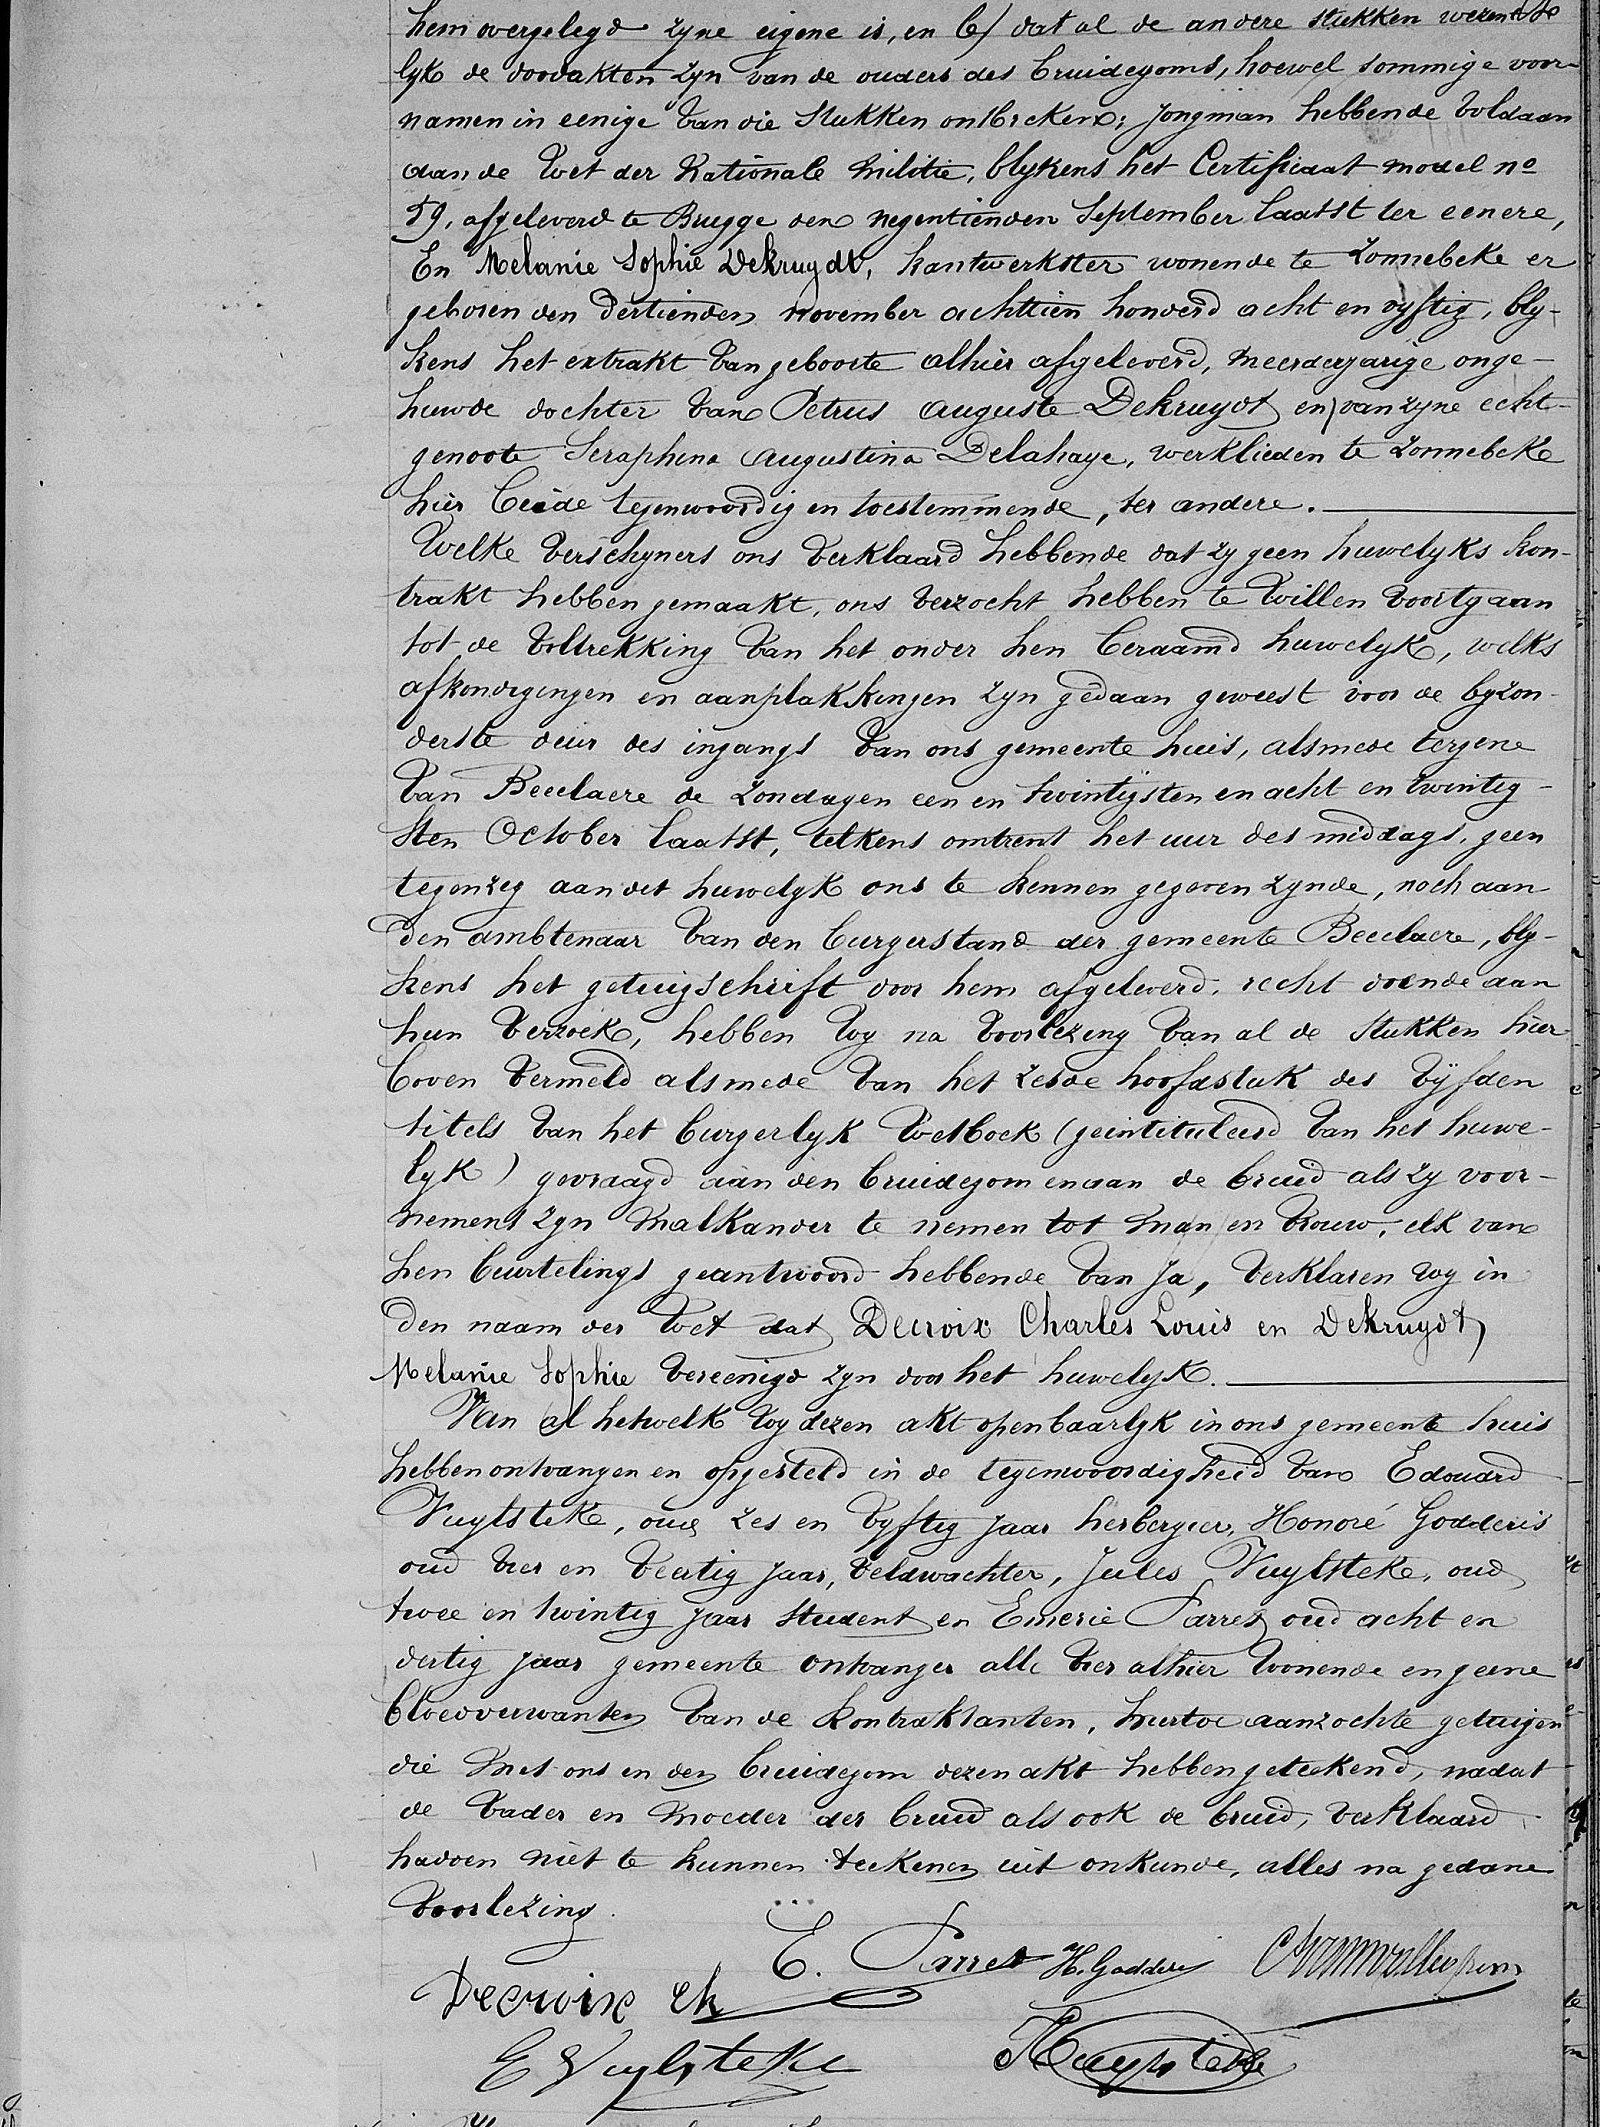 hem overgelegd zyne eigene is, en b) dat al de andere stukken wezent
lyk de doodakten zyn van de ouders des bruidegoms, hoewel sommige voor-
namen in eenige van die stukken ontbreken; jongman hebbende voldaan
aan de wet der Nationale Militie, blykens het Certificaat model no
59, afgeleverd te Brugge den negentienden September laatst ter eenere,
En Melanie Sophie Dekruydt, kantwerkster wonende te Zonnebeke er
geboren den dertienden november achttien honderd acht en vyftig, bly-
kens het extrakt van geboorte alhier afgeleverd, meerderjarige onge-
huwde dochter van Petrus Auguste Dekruydt en van zyne echt-
genoote Seraphina Augustina Delahaye, werklieden te Zonnebeke
hier beide tegenwoordig en toestemmende, ter andere.
Welke verschyners ons verklaard hebbende dat zy geen huwelyks kon-
trakt hebben gemaakt, ons verzocht hebben te willen voortgaan
tot de voltrekking van het onder hen beraamd huwelyk, welks
afkondigingen en aanplakkingen zyn gedaan geweest voor de byzon-
derste deur des ingangs van ons gemeente huis, alsmede tergene
van Becelaere de zondagen een en twintigsten en acht en twintig-
sten October laatst, telkens omtrent het uur des middags, geen
tegenzeg aan dit huwelyk ons te kennen gegeven zynde, noch aan
den ambtenaar van den burgerstand der gemeente Becelaere, bly-
kens het getuigschrift door hem afgeleverd, recht doende aan
hun verzoek, hebben wy na voorlezing van al de stukken hier-
boven vermeld alsmede van het zesde hoofdstuk des vyfden
titels van het burgerlyk wetboek (geintituleerd van het huwe-
lyk) gevraagd aan den bruidegom en aan de bruid als zy voor-
nemens zyn malkander te nemen tot man en vrouw, elk van
hen beurtelings geantwoord hebbende van Ja, verklaren wy in
den naam der wet dat Decroix Charles Louis en Dekruydt
Melanie Sophie vereenigd zyn door het huwelyk.
Van al hetwelk wy dezen akt openbaarlyk in ons gemeente huis
hebben ontvangen en opgesteld in de tegenwoordigheid van Edouard
Vuylsteke, oud zes en vyftig jaar herbergier, Honoré Godderis
oud vier en veertig jaar, veldwachter, Jules Vuylsteke, oud
twee en twintig jaar student en Emerie Parret oud acht en
dertig jaar gemeente ontvanger alle vier alhier wonende en geene
bloedverwanten van de kontraktanten, hiertoe aanzochte getuigen
die met ons en den bruidegom dezen akt hebben geteekend, nadat
de vader en moeder der bruid als ook de bruid, verklaard
hadden niet te kunnen teekenen uit onkunde, alles na gedane
voorlezing.
E. Parret H. Godderis
Decroix Ch
E Vuylsteke J Vuylsteke